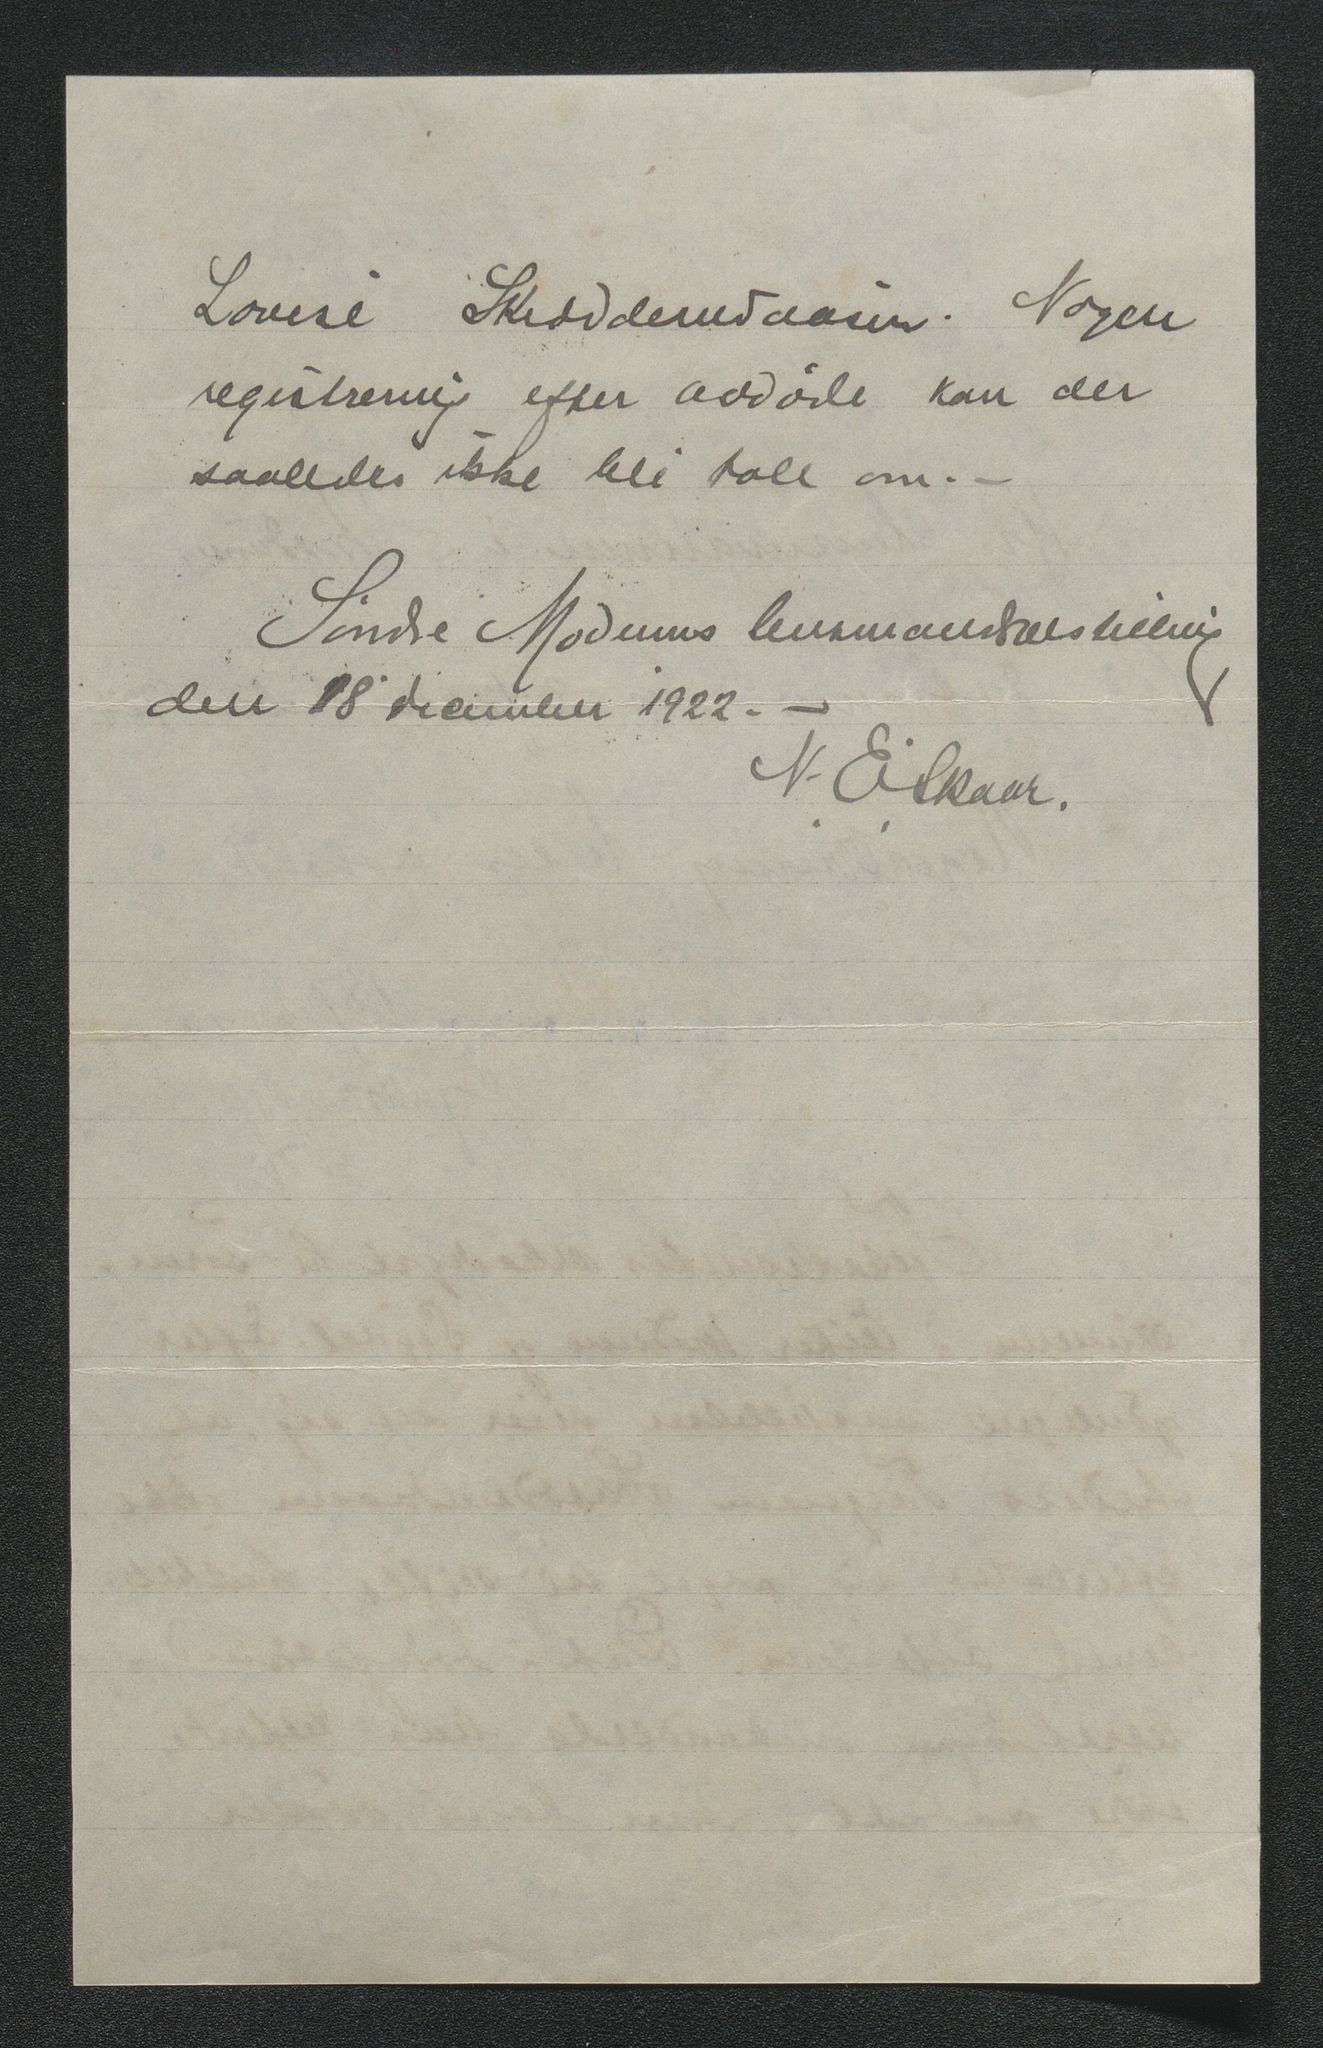 Lovise Skredderudaasen. Nogen
registrering efter avdöde kan der
saaledes ikke bli tale om. -
Söndre Modums lensmandsbestilling
den 18 december 1922. -
N. Eiskaar.